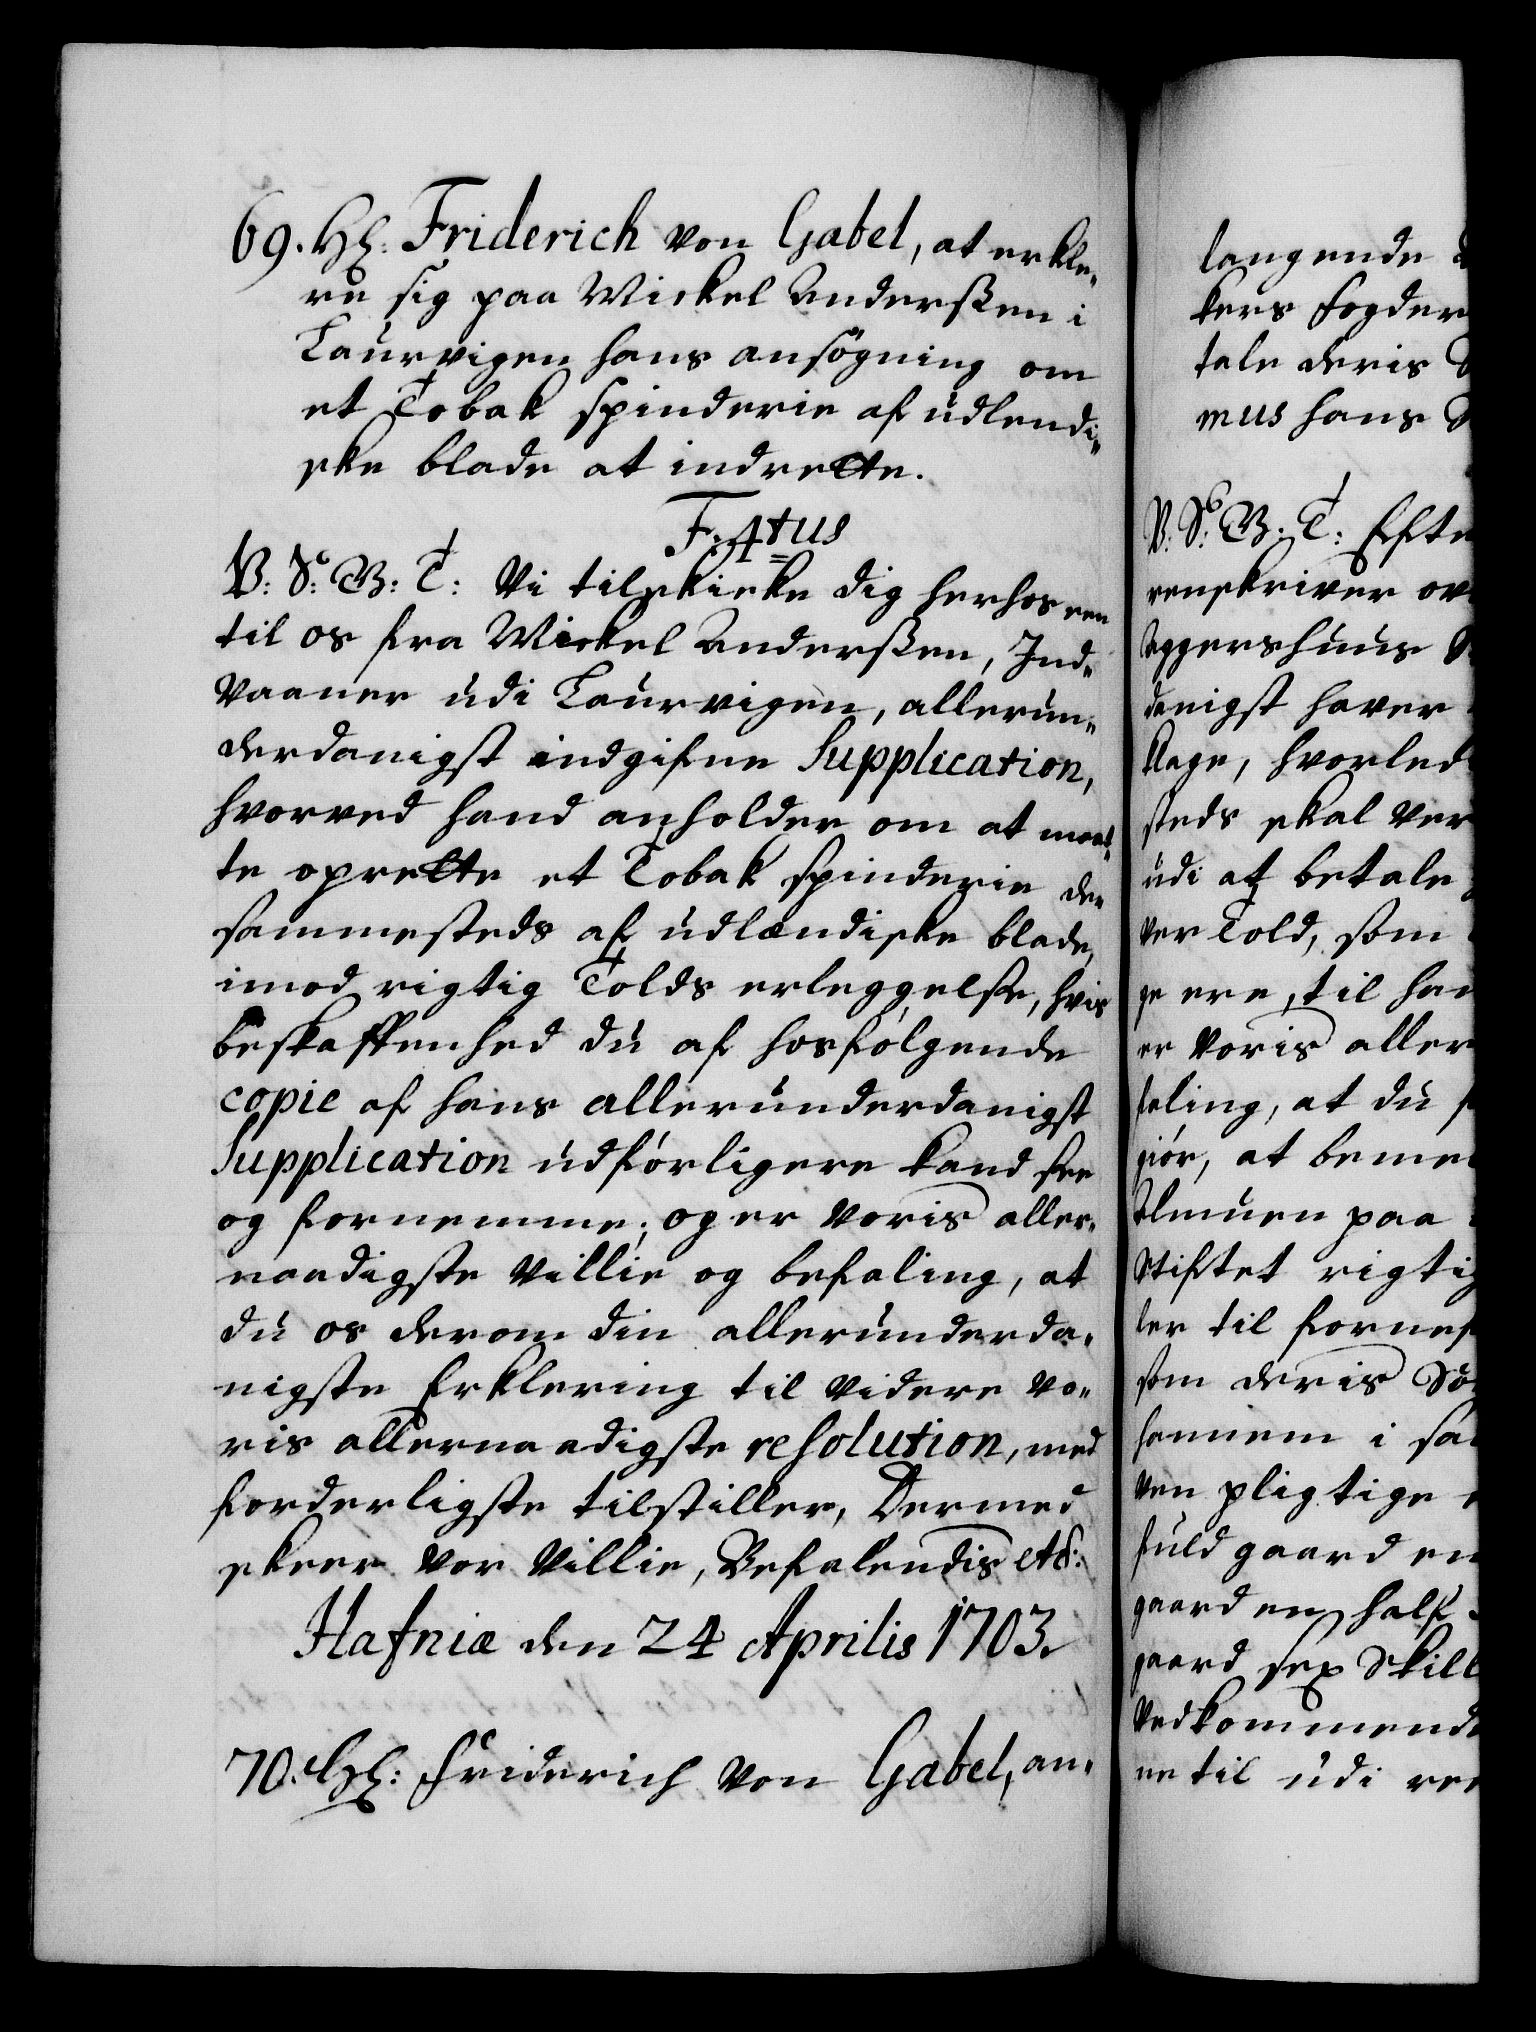 69. Hl: Friderich von Gabel, at erkle-
re sig paa Mickel Anderßen i
Laurvigen hans ansøgning om
et Tobak spinderie af udlendi-
ske blade at indrette.
F: 4tus
V: S: G: T: Vi tilskicke dig herhos een
til os fra Mickel Anderßen, Ind-
vaaner udi Laurvigen, allerun-
derdanigst indgifne Supplication,
hvorved hand anholder om at maat-
te oprette et Tobak spinderie der
sammesteds af udlændiske blade,
imod rigtig Tolds erleggelse, hvis
beskaffenhed du af hosfølgende
copie af hans allerunderdanigst
Supplication udførligere kand see
og fornemme; og er voris aller-
naadigste villie og befaling, at
du os derom din allerunderda-
nigste Erklering til videre vo-
ris allernaadigste resolution, med
forderligste tilstiller, Dermed
skeer vor villie, Befalendis etc:
Hafniæ den 24 Aprilis 1703.
70. Hl: Friderich von Gabel, an-
langende
kers fogder
tale deris
mus hans
V: S: G: T: Efter
renskriver ov
Aggershuus
danigst haver
klage, hvorled
steds skal ver
udi at betale
ver Told, som
ge ere, til han
er voris aller
faling, at du
giør, at beme
Almuen paa
Stiftet rigtig
ler til fornef
som deris Sø
hannem i sa
ven pligtige
fuld gaard en
gaard en half
gaard sex Skill
vedkommend
ne til udi ree